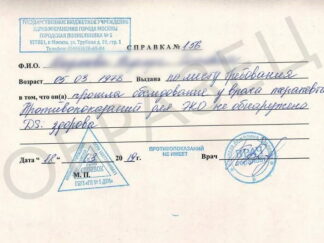 ГОСУДАРСТВЕННОЕ БЮДЖЕТНОЕ УЧРЕЖДЕНИЕ
ЗДРАВООХРАНЕНИЯ ГОРОДА МОСКВЫ
ГОРОДСКАЯ ПОЛИКЛИНИКА № 5
СПРАВКА № 156
Ф.И.О.
Возраст 05 03 1976 Выдана по месту требования
в том, что он(а) прошла обследование у врача терапевта
Противопоказаний для ЭКО не обнаружено
DS: здорова
Дата " " 03 20 г. Врач
ПРОТИВОПОКАЗАНИЙ
НЕ ИМЕЕТ
М. П.
ОБРАЗЕЦ